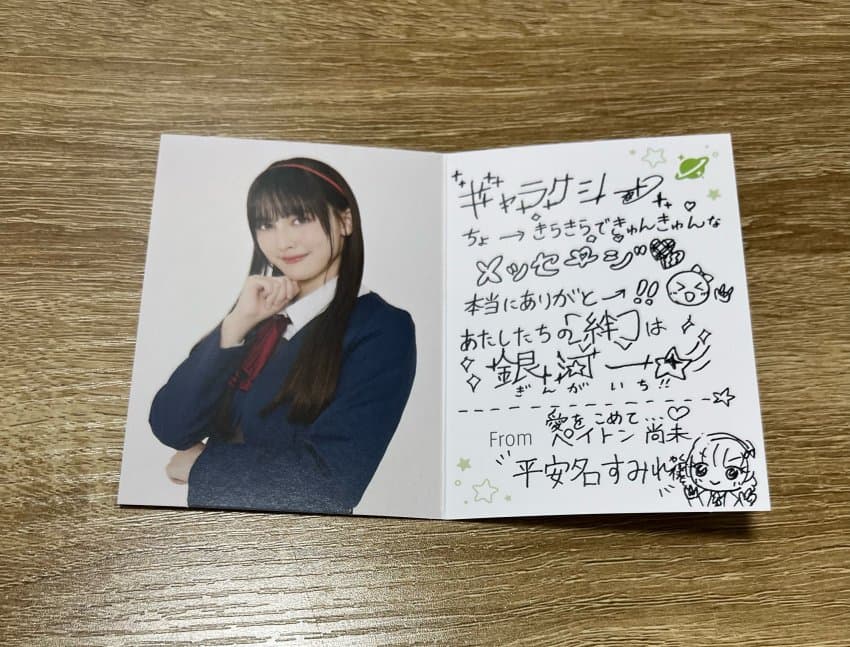 ギャラクシー
ちょ→きらきらできゅんきゅんな
メッセージ
本当にありがと→!!
あたしたちの「絆」は
銀河一
ぎんがいち!!
愛をこめて…♡
From ペイトン 尚未
平安名すみれ役